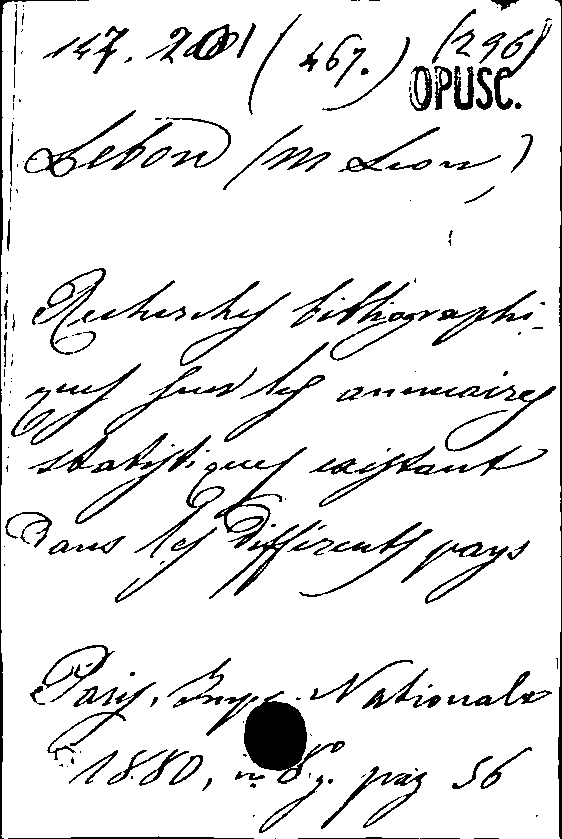 147. 201 (467.) (296)
OPUSC.
Lebon (M Léon)
Recherches bibliographi-
ques sur les annuaires
statistiques existant
dans les différents pays
Paris, Imp. Nationale
1880, in 8º. pag 56